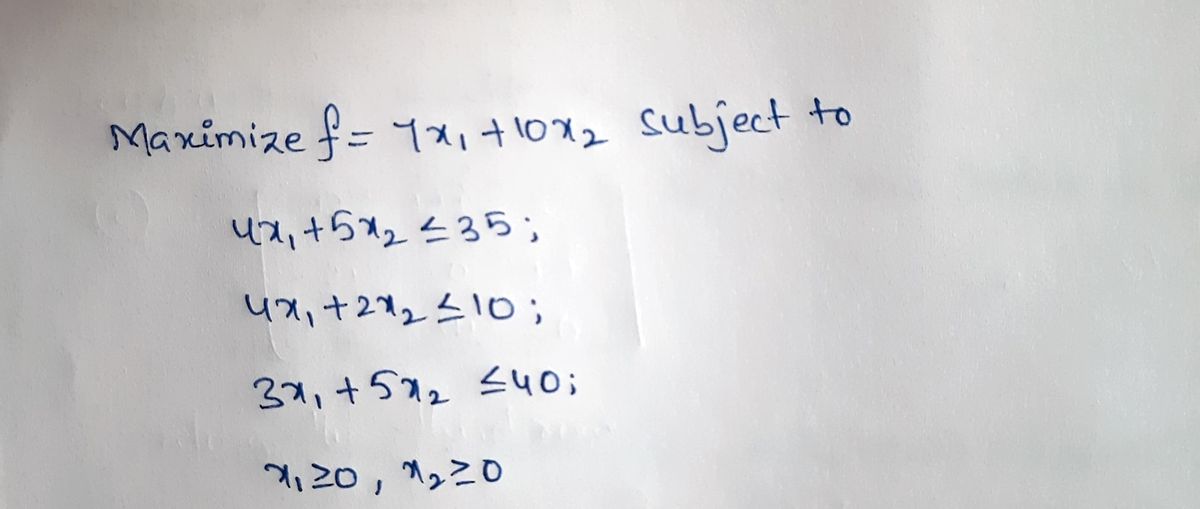 Maximize f = 7x₁ + 10x₂ subject to
4x₁ + 5x₂ ≤ 35;
4x₁ + 2x₂ ≤ 10;
3x₁ + 5x₂ ≤ 40;
x₁ ≥ 0, x₂ ≥ 0